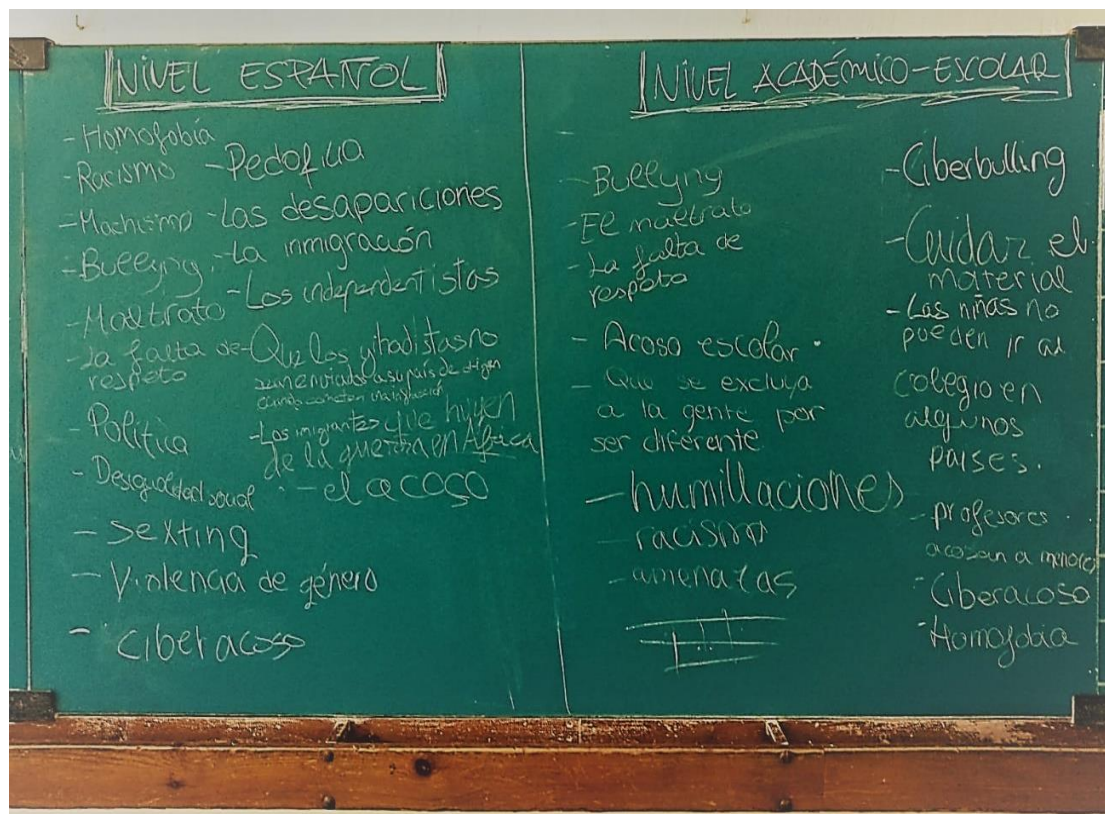 NIVEL ESPAÑOL
- Homofobia
- Racismo
- Machismo
- Bullyng
- Maltrato
- La falta de
respeto
- Política
- Desigualdad social
- sexting
- Violencia de género
- ciberacoso
- Pedofilia
- Las desapariciones
- La inmigración
- Los independentistas
- Que los yihadistas no
sean enviados a su país de origen
cuando cometen una
- Los inmigrantes que huyen
de la guerra en África
- el acoso
NIVEL ACADÉMICO-ESCOLAR
- Bullyng
- El maltrato
- La falta de
respeto
- Acoso escolar
- Que se excluya
a la gente por
ser diferente
- humillaciones
- racismo
- amenazas
- Ciberbulling
- Cuidar el
material
- Las niñas no
pueden ir al
colegio en
algunos
paises.
- profesores
acosan a menores
- Ciberacoso
- Homofobia